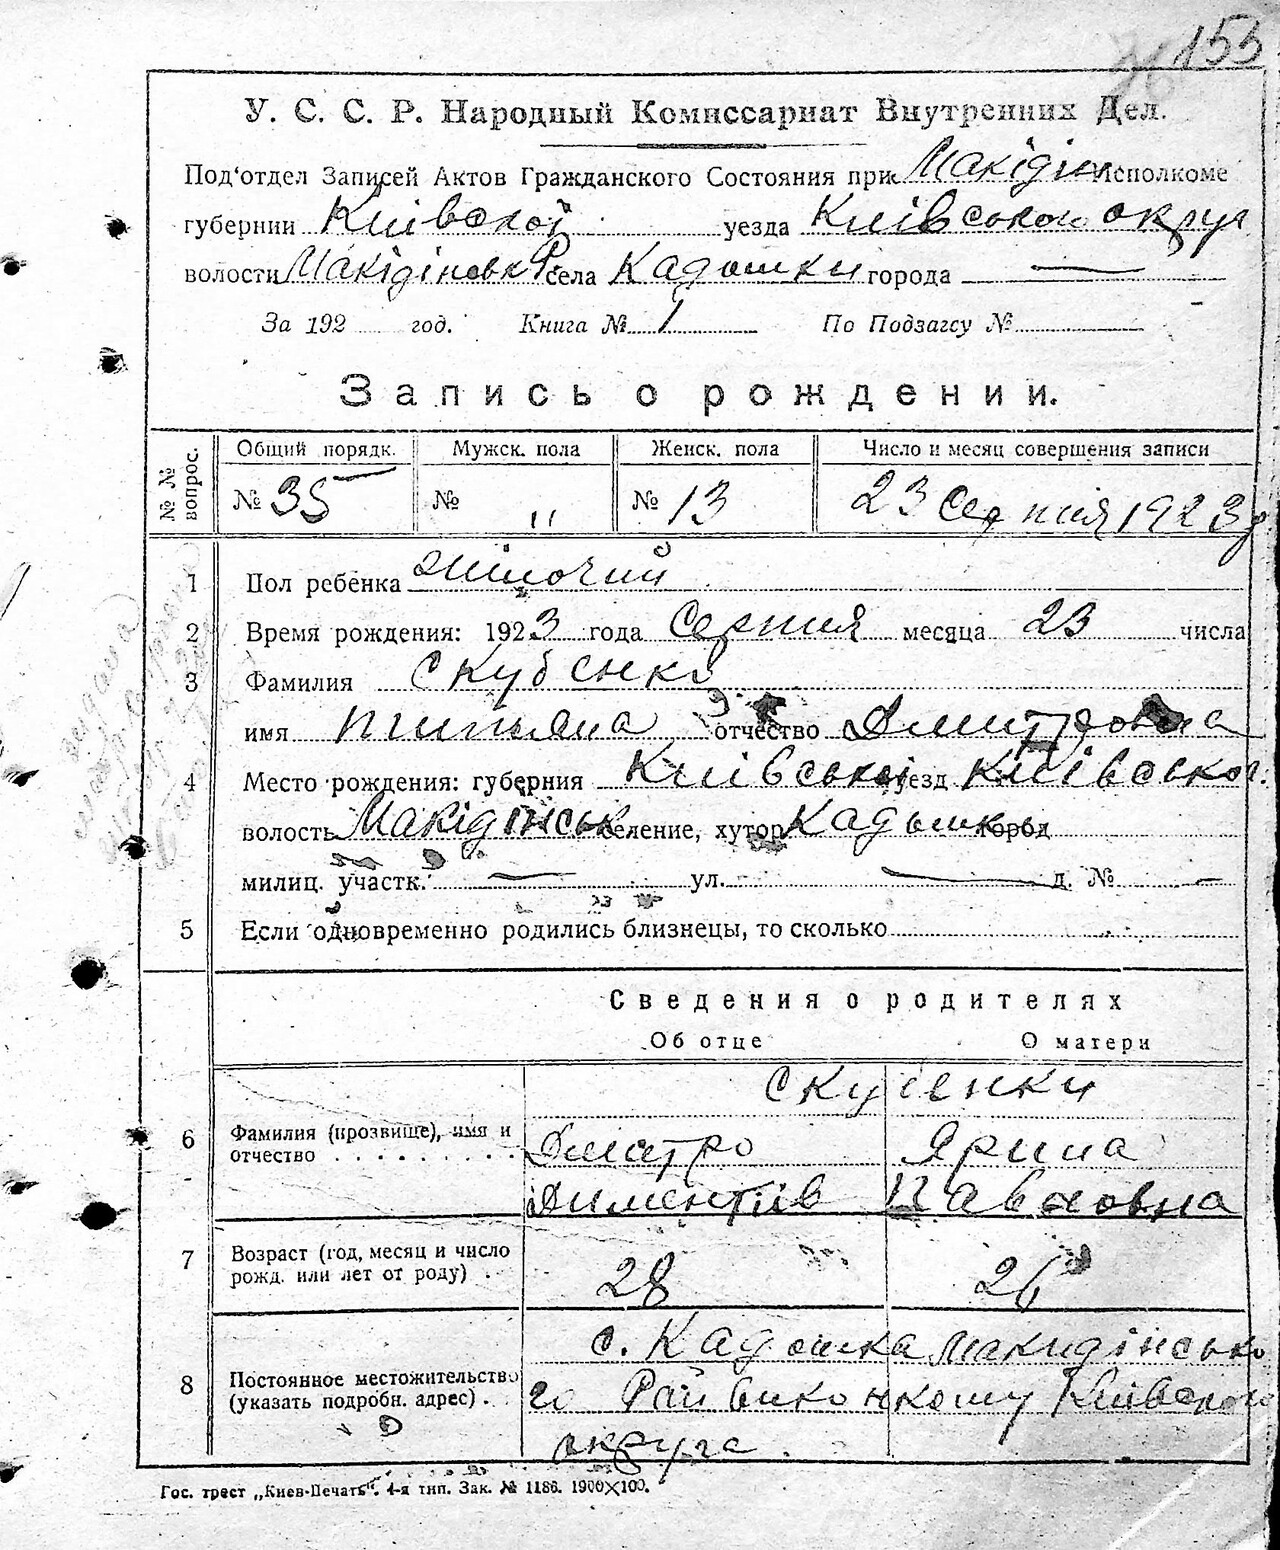 155
У. С. С. Р. Народный Комиссариат Внутренних Дел.
Под'отдел Записей Актов Гражданского Состояния при Макідін Исполкоме
губернии Київскої уезда Київського округ
волости Макідіновк Р. села Кадомки города —
За 192 год. Книга № 1 По Подзагсу №
Запись о рождении.
№ № вопрос.
Общий порядк. Мужск. пола Женск. пола Число и месяц совершения записи
№ 35 № " № 13 23 Серпня 1923 р
1 Пол ребенка жіночий
2 Время рождения: 1923 года Серпня месяца 23 числа
3 Фамилия Скубенко
имя Титяна отчество Дмитровна
4 Место рождения: губерния Київської уезд Київськог.
волость Макідінськ селение, хутор Кадомка город
милиц. участк. — ул. — д. № —
5 Если одновременно родились близнецы, то сколько
Сведения о родителях
Об отце О матери
Скубенки
6 Фамилия (прозвище), имя и отчество Дмитро Ярина
Диментіів Павловна
7 Возраст (год, месяц и число рожд. или лет от роду) 28 26
8 Постоянное местожительство (указать подробн. адрес) с. Кадомка Макидінсько
го Райвиконкому Київського
округа.
Гос. трест „Киев-Печать". 4-я тип. Зак. № 1186. 1900×100.